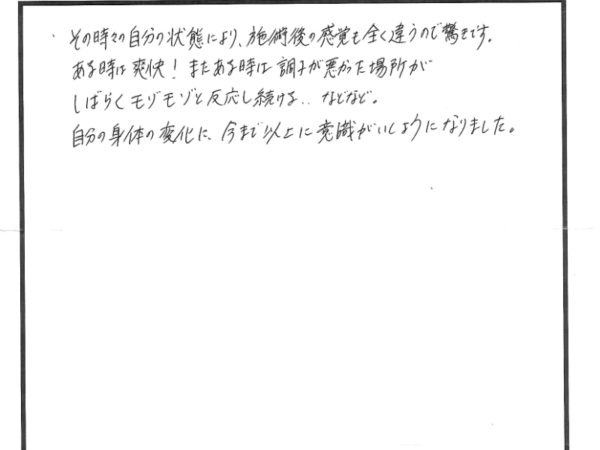 ・その時々の自分の状態により、施術後の感覚も全く違うので驚きです。
ある時は爽快！またある時は調子が悪かった場所が
しばらくモゾモゾと反応し続ける..などなど。
自分の身体の変化に、今まで以上に意識がいくようになりました。